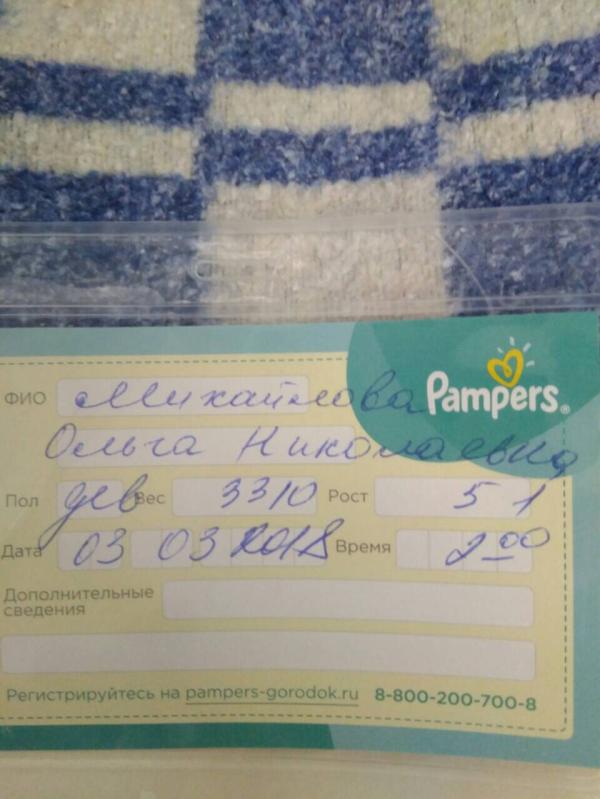 Pampers®
ФИО Михайлова
Ольга Николаевна
Пол дев Вес 3310 Рост 51
Дата 03 03 2018 Время 2 00
Дополнительные
сведения
Регистрируйтесь на pampers-gorodok.ru 8-800-200-700-8